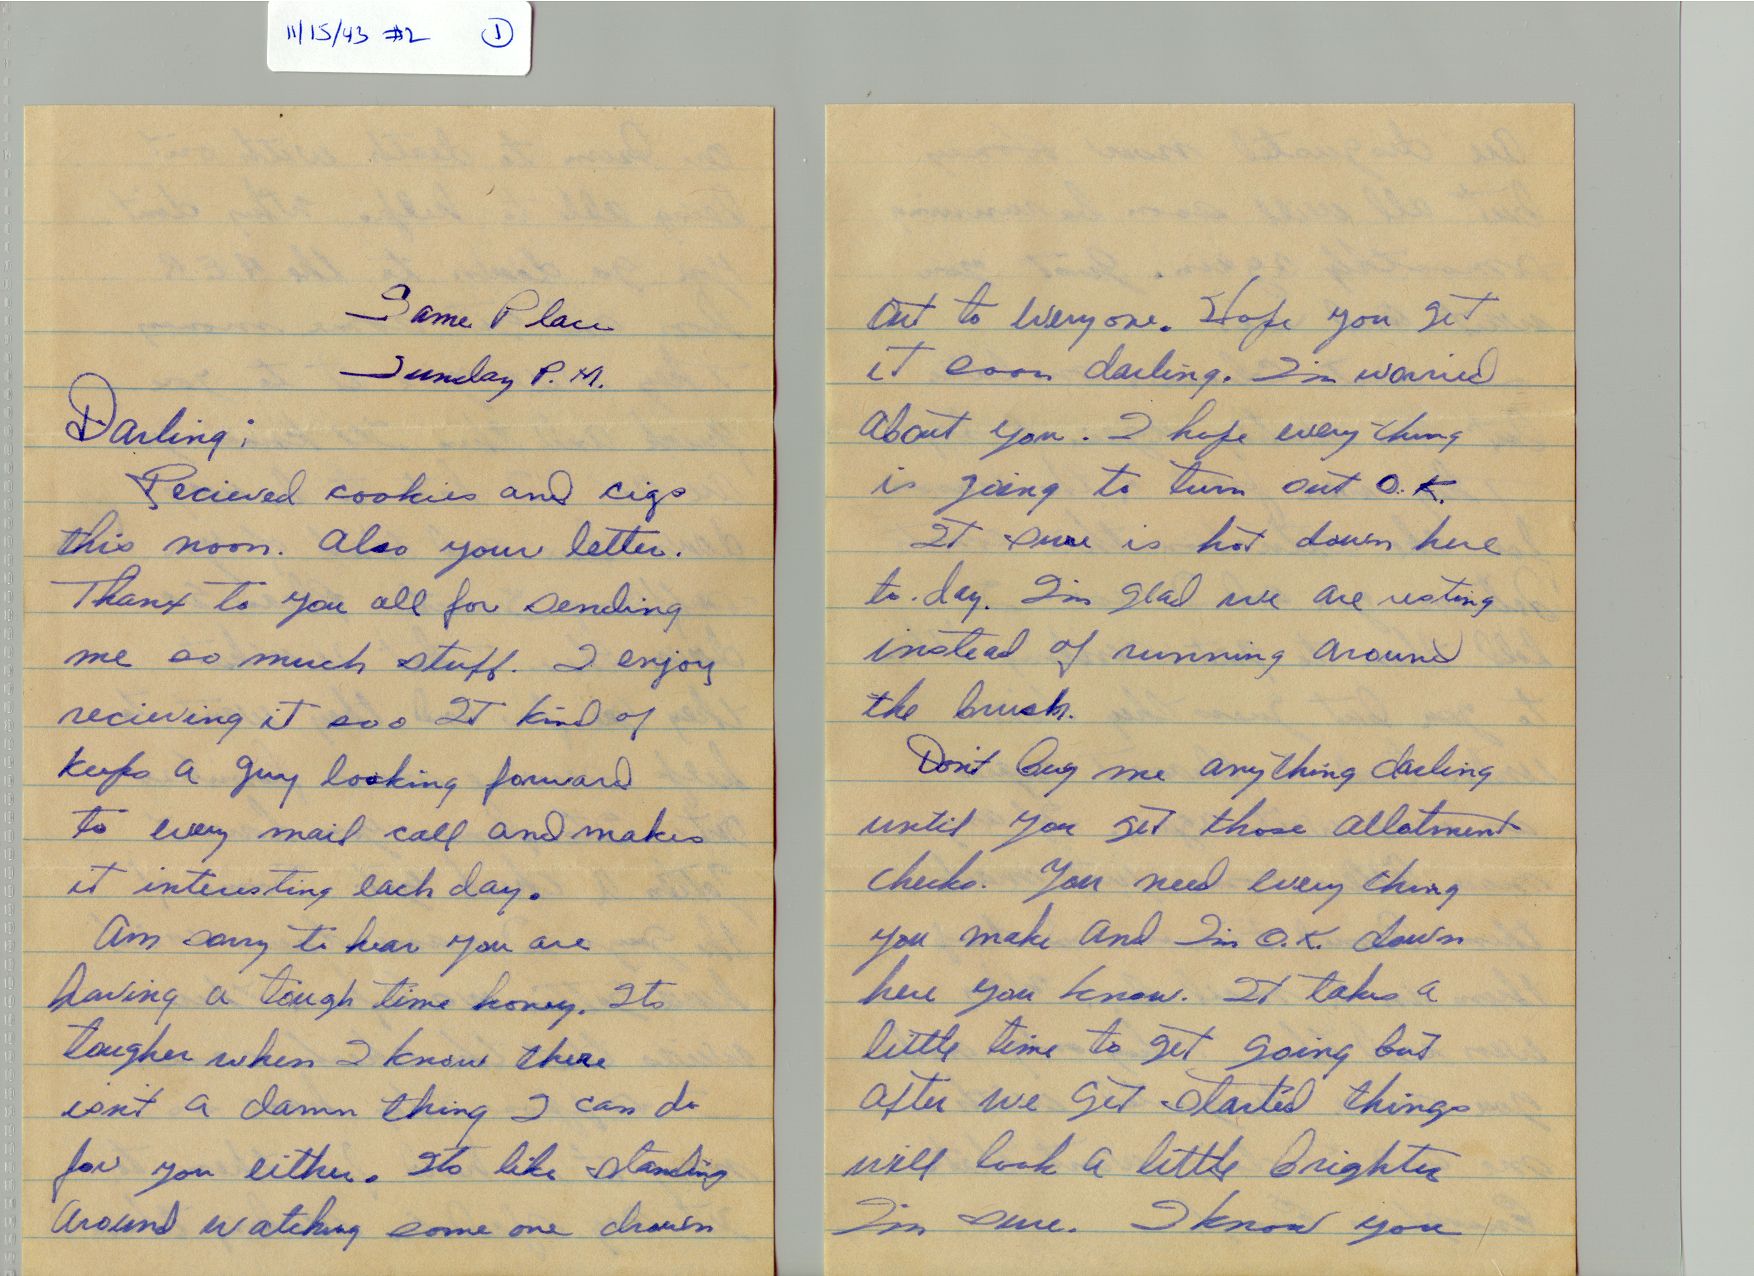 11/15/43 #2 1
Same Place
Sunday P.M.
Darling;
Recieved cookies and cigs
this noon. Also your letter.
Thanx to you all for sending
me so much stuff. I enjoy
recieving it soo It kind of
keeps a guy looking forward
to every mail call and makes
it interesting each day.
Am sorry to hear you are
having a tough time honey. Its
tougher when I know there
isn't a damn thing I can do
for you either. Its like standing
around watching some one drown
out to everyone. Hope you get
it soon darling. I'm worried
about you. I hope everything
is going to turn out O.K.
It sure is hot down here
to-day. I'm glad we are resting
instead of running around
the brush.
Don't buy me anything darling
until you get those allotment
checks. You need every thing
you make and I'm O.K. down
here you know. It takes a
little time to get going but
after we get started things
will look a little brighter
I'm sure. I know you